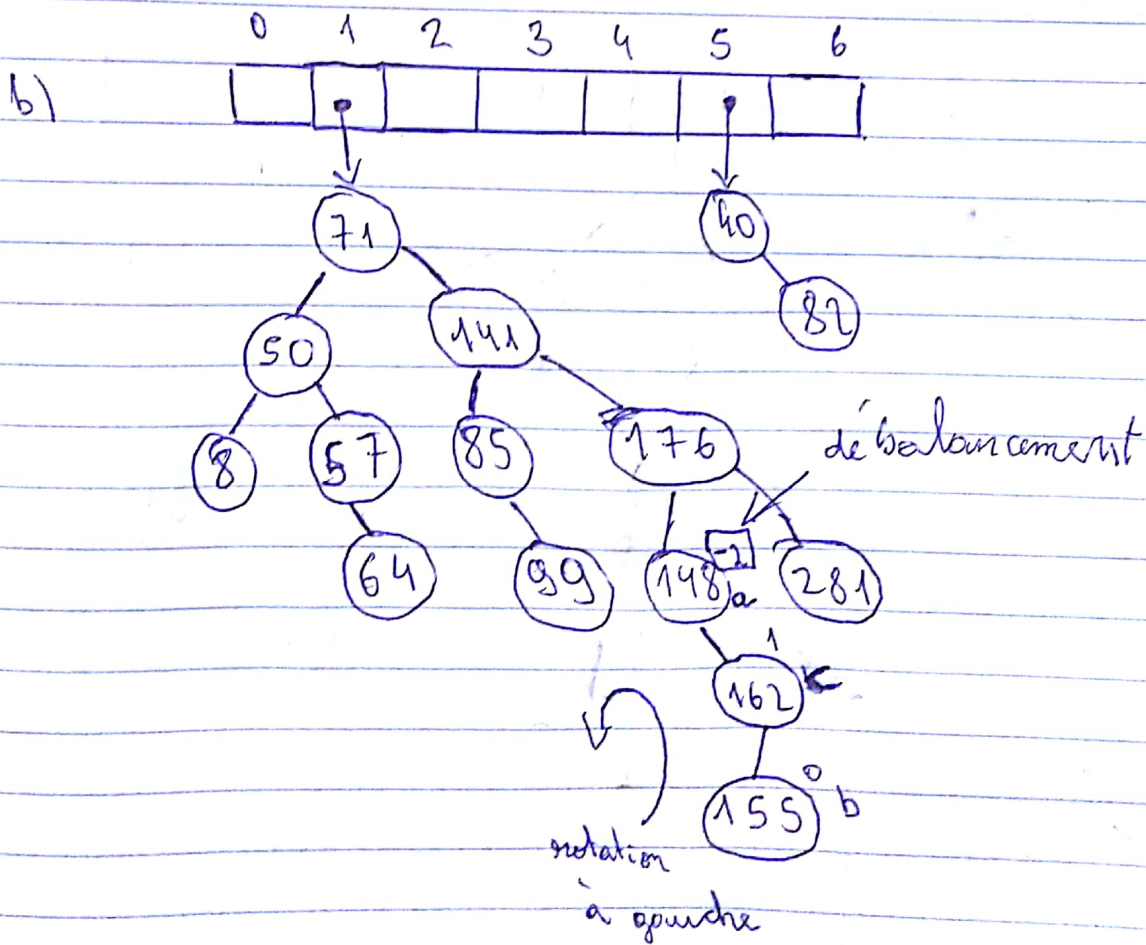 0 1 2 3 4 5 6
b)
71 40
82
50 141
8 57 85 176 débalancement
-2
64 99 148 a 281
1
162 c
0
155 b
rotation
à gauche